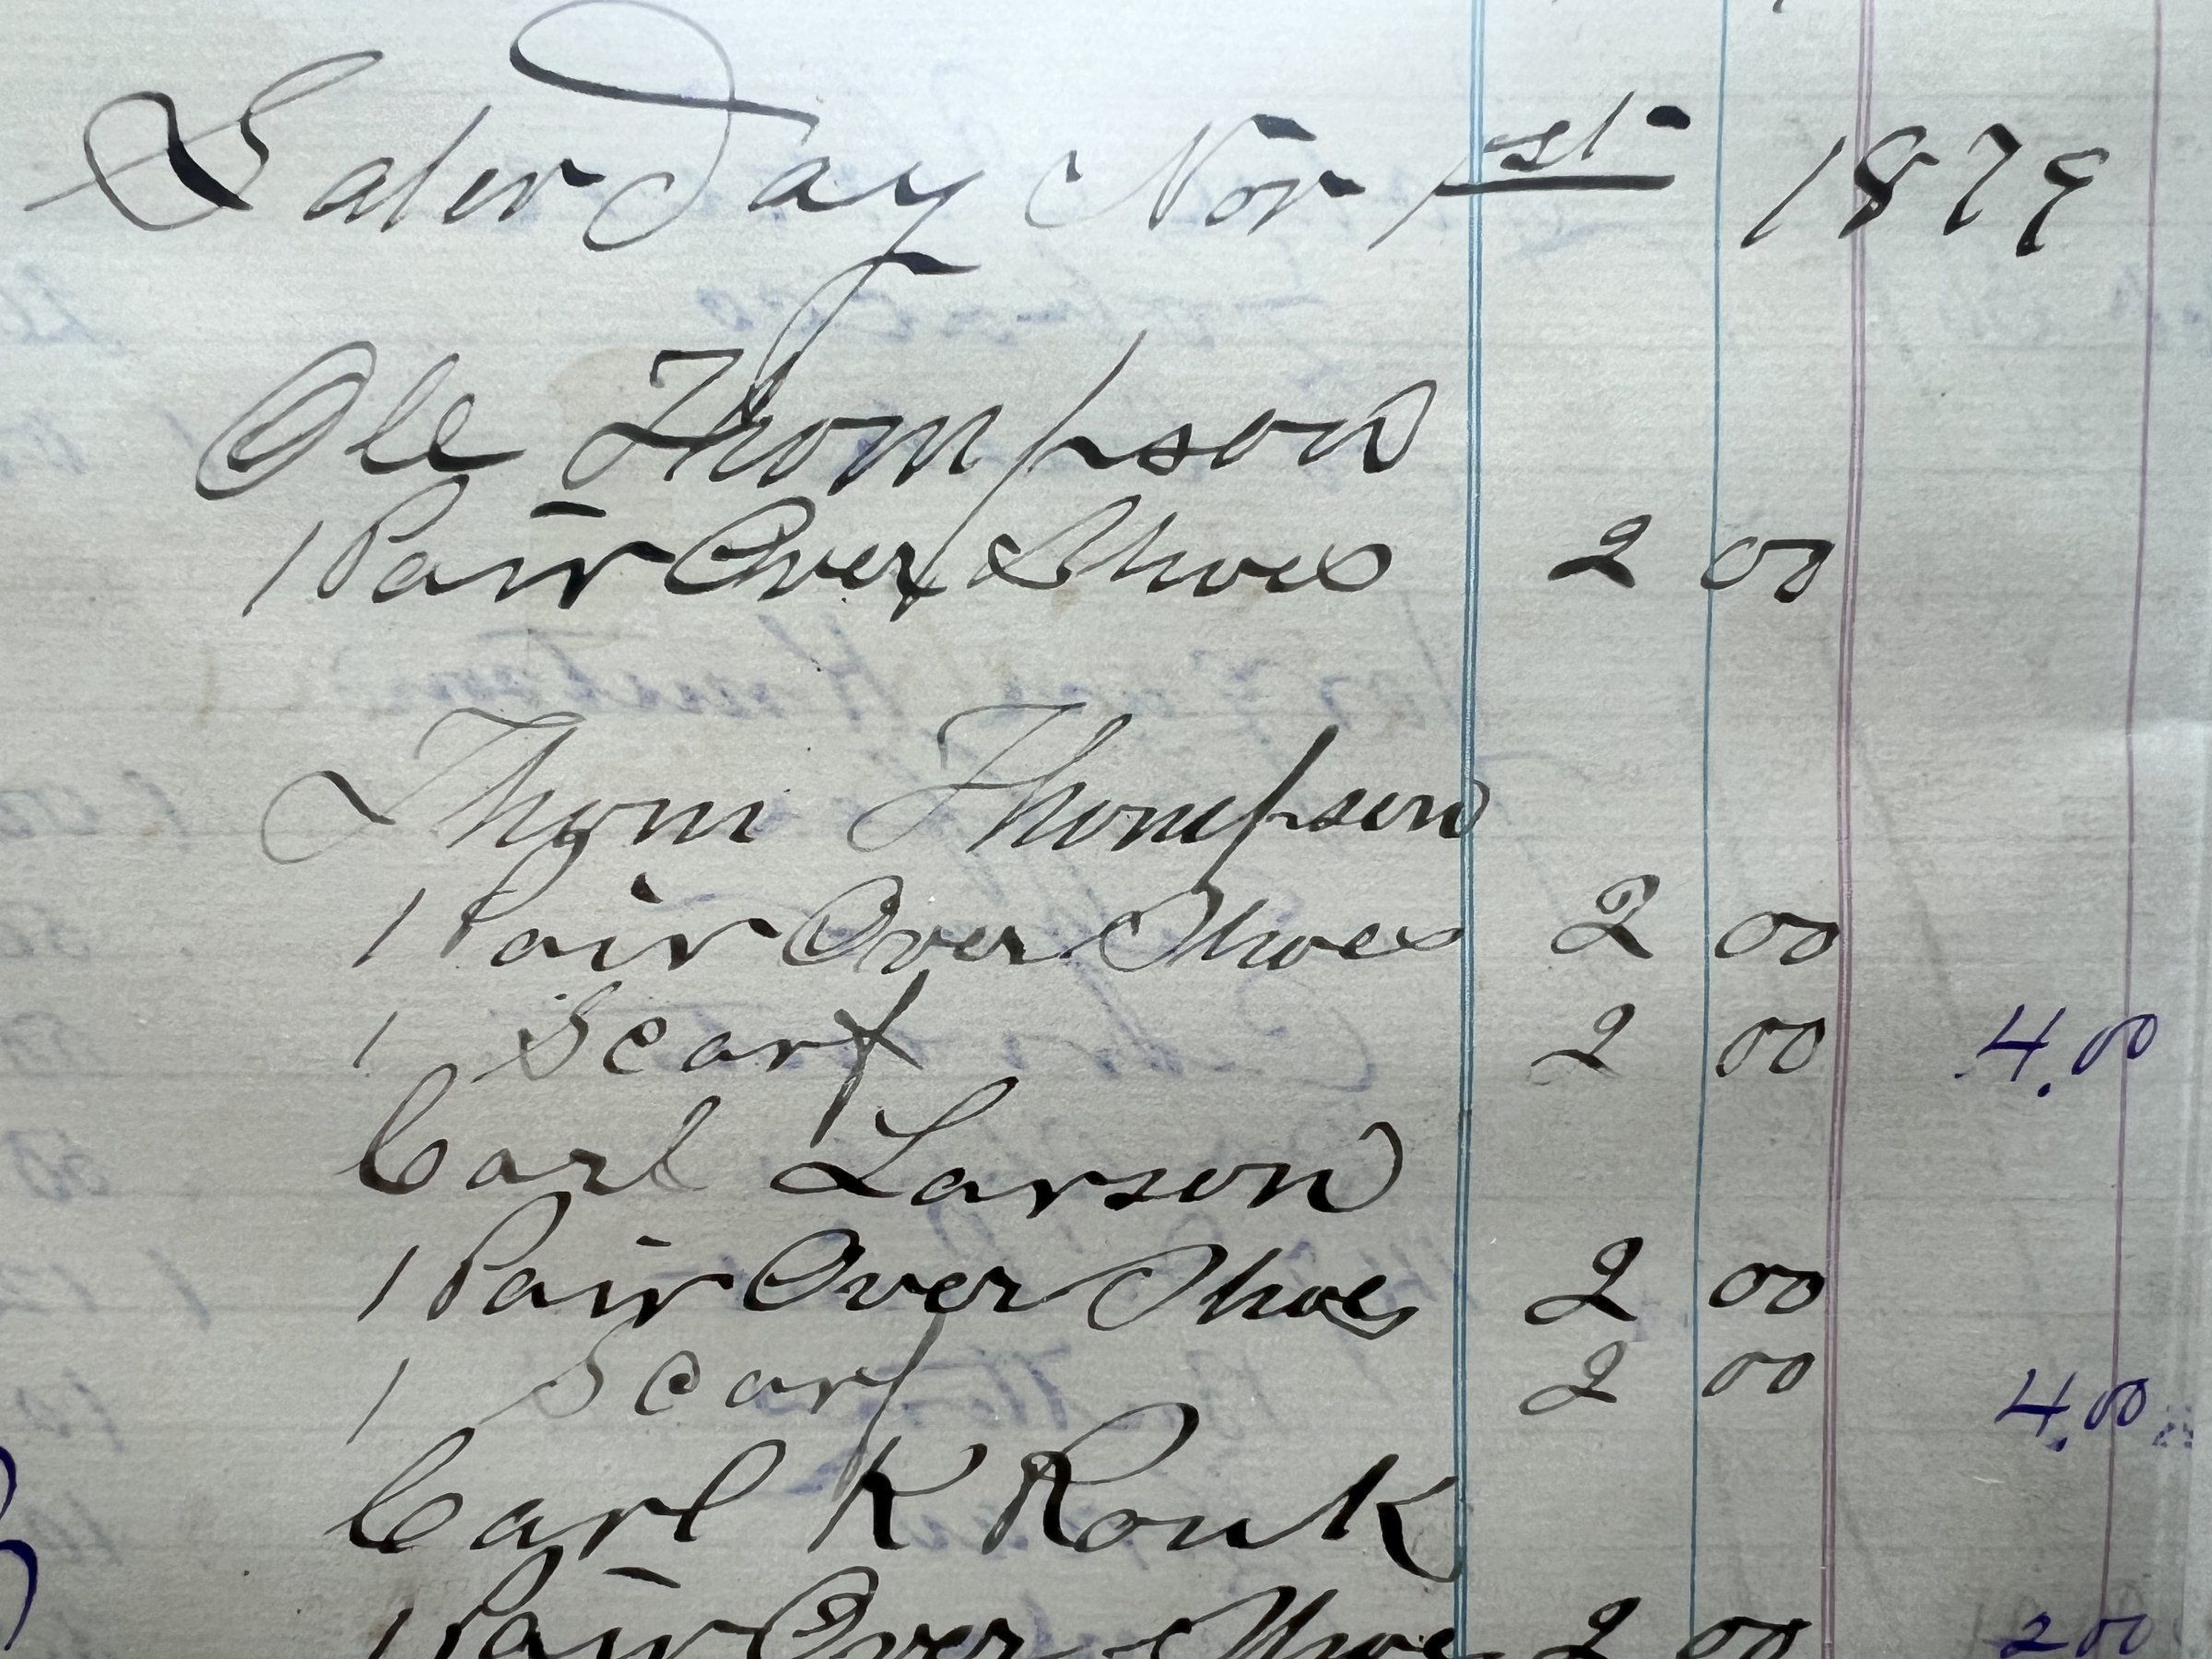 Saturday Nov 1st 1879
Ole Thompson
1 Pair Over Shoes 2 00
Thom Thompson
1 Pair Over Shoes 2 00
1 Scarf 2 00 4.00
Carl Larson
1 Pair Over Shoes 2 00
1 Scarf 2 00 4.00
Carl K Rouk
1 Pair Over Shoes 2 00 2 00